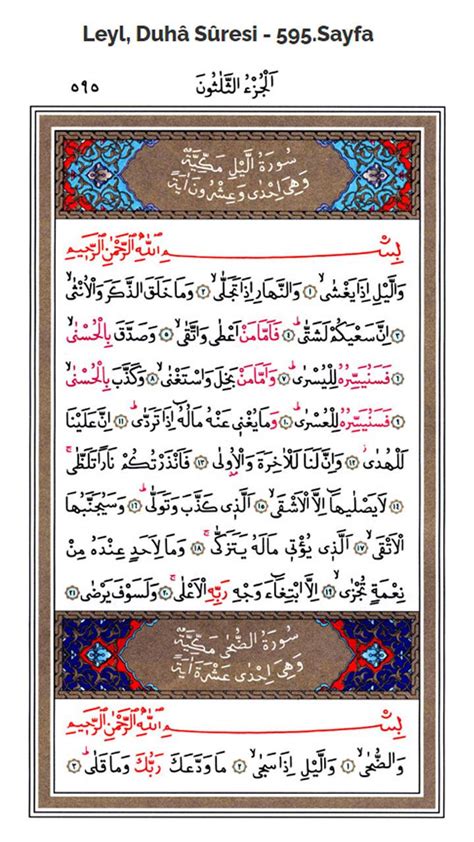 Leyl, Duhâ Sûresi - 595.Sayfa
اَلْجُزْءُ الثَّلٰثُونَ ٥٩٥
سُورَةُ الَّيْلِ مَكِّيَّةٌ
وَهِيَ اِحْدٰى وَعِشْرُونَ اٰيَةً
بِسْمِ اللّٰهِ الرَّحْمٰنِ الرَّحِيمِ
وَالَّيْلِ اِذَا يَغْشٰىۙ ﴿١﴾ وَالنَّهَارِ اِذَا تَجَلّٰىۙ ﴿٢﴾ وَمَا خَلَقَ الذَّكَرَ وَالْاُنْثٰىۙ
﴿٣﴾ اِنَّ سَعْيَكُمْ لَشَتّٰىۜ ﴿٤﴾ فَاَمَّا مَنْ اَعْطٰى وَاتَّقٰىۙ ﴿٥﴾ وَصَدَّقَ بِالْحُسْنٰىۙ
﴿٦﴾ فَسَنُيَسِّرُهُ لِلْيُسْرٰىۜ ﴿٧﴾ وَاَمَّا مَنْ بَخِلَ وَاسْتَغْنٰىۙ ﴿٨﴾ وَكَذَّبَ بِالْحُسْنٰىۙ
﴿٩﴾ فَسَنُيَسِّرُهُ لِلْعُسْرٰىۜ ﴿١٠﴾ وَمَا يُغْنِي عَنْهُ مَالُهُٓ اِذَا تَرَدّٰىۜ ﴿١١﴾ اِنَّ عَلَيْنَا
لَلْهُدٰىۘ ﴿١٢﴾ وَاِنَّ لَنَا لَلْاٰخِرَةَ وَالْاُو۫لٰى ﴿١٣﴾ فَاَنْذَرْتُكُمْ نَارًا تَلَظّٰىۚ
﴿١٤﴾ لَا يَصْلٰيهَٓا اِلَّا الْاَشْقٰىۙ ﴿١٥﴾ اَلَّذ۪ي كَذَّبَ وَتَوَلّٰىۜ ﴿١٦﴾ وَسَيُجَنَّبُهَا
الْاَتْقٰىۙ ﴿١٧﴾ اَلَّذ۪ي يُؤْت۪ي مَالَهُ يَتَزَكّٰىۚ ﴿١٨﴾ وَمَا لِاَحَدٍ عِنْدَهُ مِنْ
نِعْمَةٍ تُجْزٰىۙ ﴿١٩﴾ اِلَّا ابْتِغَٓاءَ وَجْهِ رَبِّهِ الْاَعْلٰىۚ ﴿٢٠﴾ وَلَسَوْفَ يَرْضٰى ﴿٢١﴾
سُورَةُ الضُّحٰى مَكِّيَّةٌ
وَهِيَ اِحْدٰى عَشْرَةَ اٰيَةً
بِسْمِ اللّٰهِ الرَّحْمٰنِ الرَّحِيمِ
وَالضُّحٰىۙ ﴿١﴾ وَالَّيْلِ اِذَا سَجٰىۙ ﴿٢﴾ مَا وَدَّعَكَ رَبُّكَ وَمَا قَلٰىۜ ﴿٣﴾